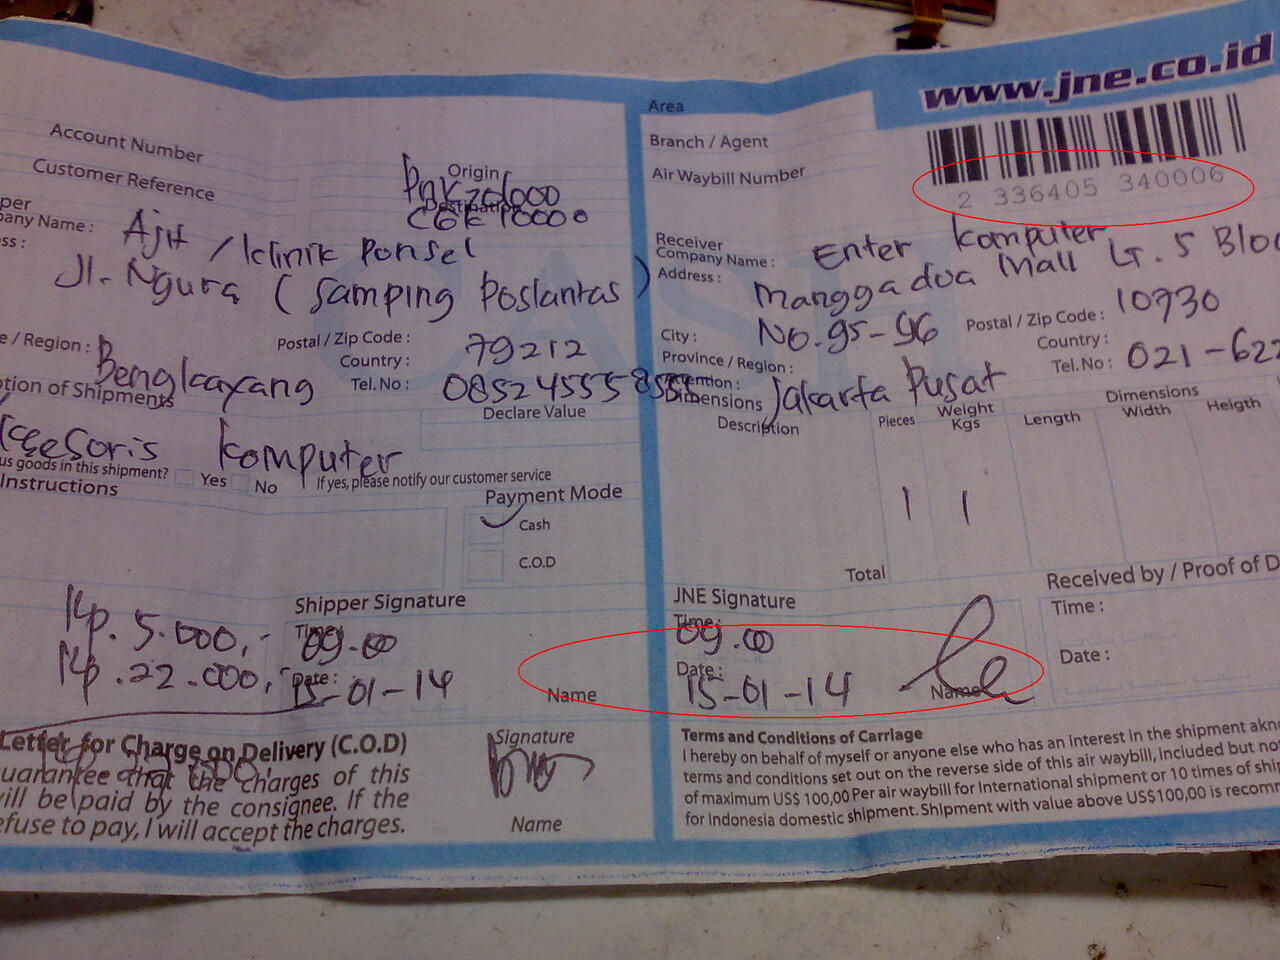 www.jne.co.id
Area
Branch / Agent
Air Waybill Number
2 336405 340006
Account Number
Customer Reference
Origin
PNK20000
Destination
CGK10000
per
pany Name : Ajit / Klinik Ponsel
ss : Jl. Ngura (Samping Poslantas)
e / Region : Bengkayang
Postal / Zip Code : 79212
Country :
Tel. No :
ption of Shipments
Declare Value
ccesoris Komputer
us goods in this shipment? Yes No If yes, please notify our customer service
Instructions
Payment Mode
Cash
C.O.D
Rp. 5.000,-
Rp. 22.000,-
Shipper Signature
Time : 09.00
Date : 15-01-14
Name
Letter for Charge on Delivery (C.O.D)
uarantee that the charges of this
ill be paid by the consignee. If the
efuse to pay, I will accept the charges.
Signature
Name
Receiver
Company Name : Enter Komputer
Address : Mangga dua Mall Lt. 5 Bloc
No. 95-96
City :
Postal / Zip Code : 10730
Province / Region :
Country :
Jakarta Pusat
Tel. No : 021-622
Dimensions
Description
Pieces
Weight
Kgs
Dimensions
Length Width Heigth
1 1
Total
JNE Signature
Time : 09.00
Date : 15-01-14
Name
Received by / Proof of D
Time :
Date :
Terms and Conditions of Carriage
I hereby on behalf of myself or anyone else who has an interest in the shipment akn
terms and conditions set out on the reverse side of this air waybill, included but no
of maximum US$ 100,00 Per air waybill for International shipment or 10 times of ship
for Indonesia domestic shipment. Shipment with value above US$100,00 is recom
CASH